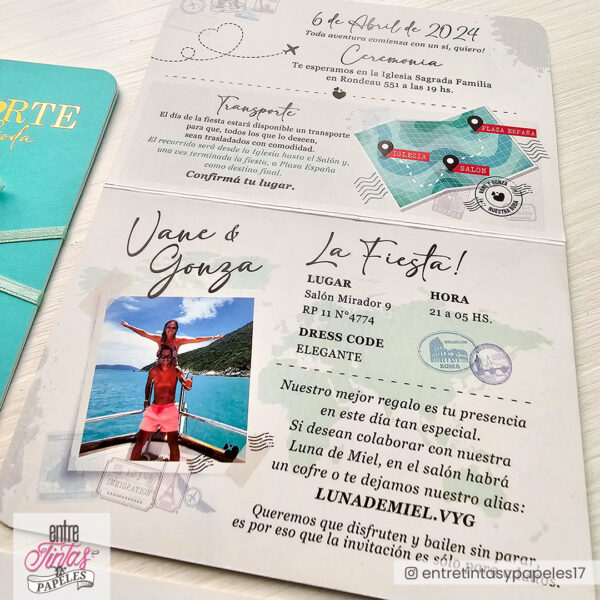 ORTE
oda
6 de Abril de 2024
Toda aventura comienza con un si, quiero!
Ceremonia
Te esperamos en la Iglesia Sagrada Familia
en Rondeau 551 a las 19 hs.
Transporte
El día de la fiesta estará disponible un transporte
para que, todos los que lo deseen,
sean trasladados con comodidad.
El recorrido será desde la Iglesia hasta el Salón y,
una vez terminada la fiesta, a Plaza España
como destino final.
Confirmá tu lugar.
PLAZA ESPAÑA
IGLESIA
SALÓN
VANE Y GONZA
NUESTRA BODA
Vane &
Gonza
La Fiesta!
LUGAR
Salón Mirador 9
RP 11 N°4774
HORA
21 a 05 HS.
DRESS CODE
ELEGANTE
COLISEUM
ROMA
Nuestro mejor regalo es tu presencia
en este día tan especial.
Si desean colaborar con nuestra
Luna de Miel, en el salón habrá
un cofre o te dejamos nuestro alias:
LUNADEMIEL.VYG
IMMIGRATION
Queremos que disfruten y bailen sin parar,
es por eso que la invitación es sólo para
entre
Tintas
y
PAPELES
entretintasypapeles17